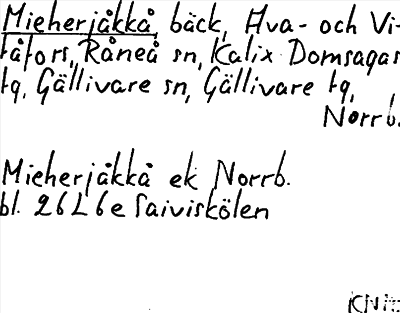 Mieherjåkkå bäck, Hva- och Vi-
tåfors, Råneå sn, Kalix Domsagas
tq, Gällivare sn, Gällivare tq,
Norrb.
Mieherjåkkå ek Norrb.
bl. 26L6e Saiviskölen